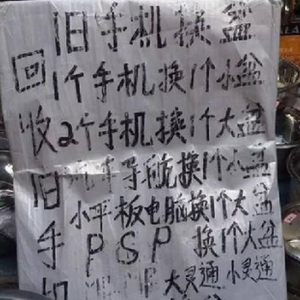 回收旧手机
旧手机换盆
1个手机换1个小盆
2个手机换1个大盆
导航换1个小盆
小平板电脑换1个大盆
PSP 换1个大盆
大灵通 小灵通